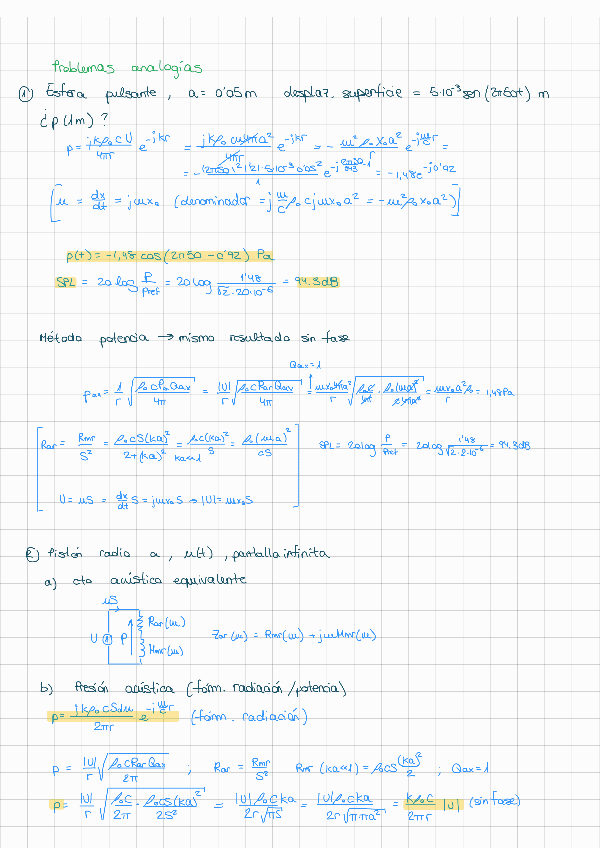 Problemas analogías
① Esfera pulsante, a = 0'05 m desplaz. superficie = 5·10⁻³ sen(2π50t) m
¿p(1m)?
p = jkρ₀cU/4πr e^-jkr = jkρ₀cωx₀4πa²/4πr e^-jkr = - ω²ρ₀x₀a²/r e^-jω/c r =
= - (2π50)² 1'21·5·10⁻³ 0'05²/1 e^-j 2π50/343 1 = -1,48 e^-j0'92
[u = dx/dt = jωx₀ (denominador = j ω/c ρ₀ c jωx₀a² = -ω²ρ₀x₀a²)]
p(t) = -1,48 cos(2π50 - 0'92) Pa
SPL = 20 log p/pref = 20 log 1'48/√2·20·10⁻⁶ = 94.3dB
Método potencia → mismo resultado sin fase
Qax = 1
pax = 1/r √(ρ₀cPaQax/4π) = |U|/r √(ρ₀cRarQax/4π) = ωx₀4πa²/r √(ρ₀c/4π · ρ₀(ωa)²/c4πa²) = ωx₀a²/r ρ₀ = 1,48Pa
Rar = Rmr/S² = ρ₀cS(ka)²/2+(ka)² = ρ₀c(ka)²/S = ρ₀(ωa)²/cS
ka<<1
SPL = 20log p/pref = 20log 1'48/√2·2·10⁻⁶ = 94.3dB
U = uS = dx/dt S = jωx₀S → |U| = ωx₀S
② Pistón radio a, u(t), pantalla infinita
a) cto acústico equivalente
uS
U P Rar(ω)
Mmr(ω)
Zar(ω) = Rmr(ω) + jωMmr(ω)
b) Presión acústica (fórm. radiación/potencia)
p = jkρ₀cSdu/2πr e^-jω/c r (fórm. radiación)
p = |U|/r √(ρ₀cRarQax/2π) ; Rar = Rmr/S² Rmr (ka<<1) = ρ₀cS (ka)²/2 ; Qax = 1
p = |U|/r √(ρ₀c/2π · ρ₀cS(ka)²/2S²) = |U|ρ₀cka/2r√πS = |U|ρ₀cka/2r√π·πa² = kρ₀c/2πr |U| (sin fase)